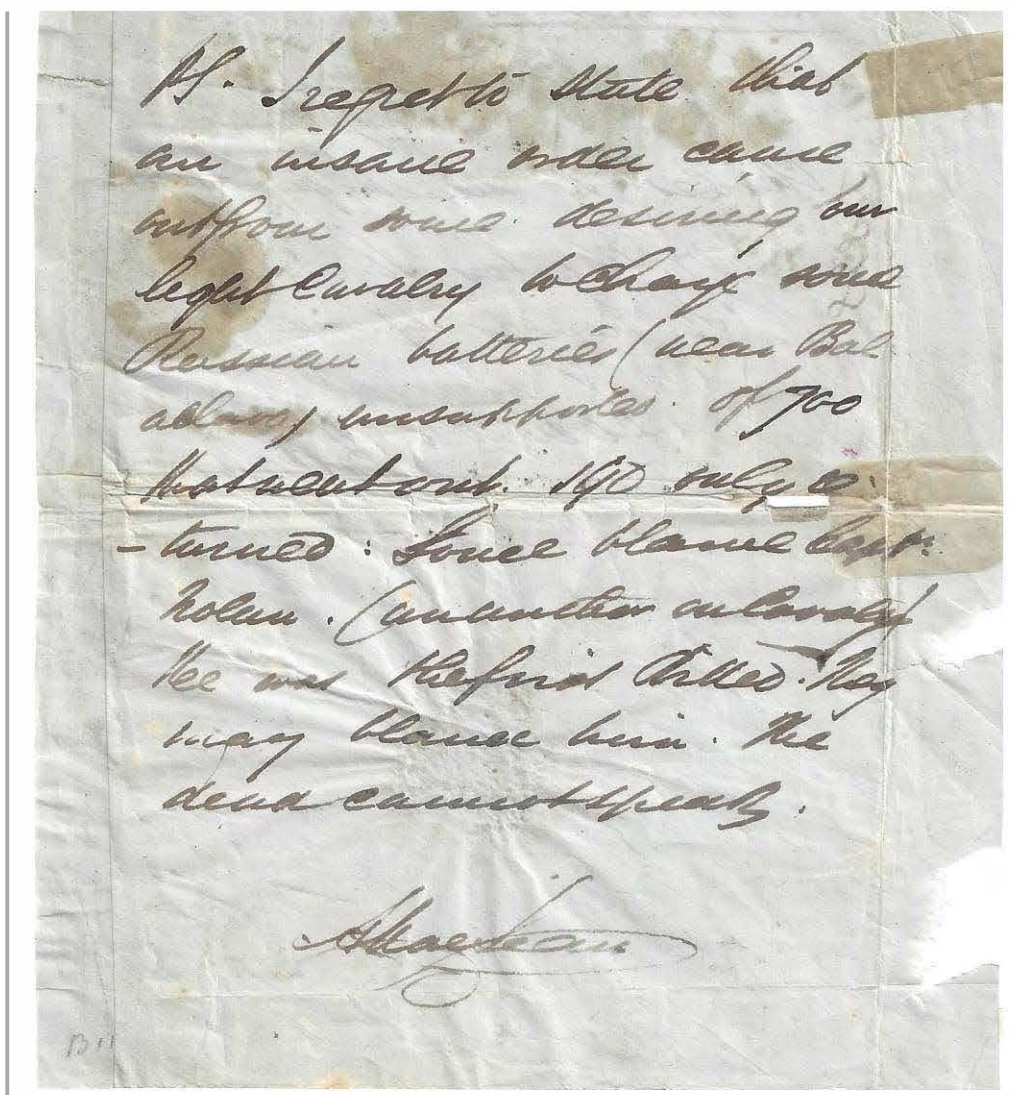 PS. I regret to state that
an insane order came
out from some desiring our
light Cavalry to Charge some
Russian batteries (near Bal
aclava) unsupported. Of 700
that went out. 190 only re-
-turned: Some blame Capt:
Nolan. (an author on Cavalry)
He was the first killed. They
may blame him. The
dead cannot speak.
A MacLean
B 11